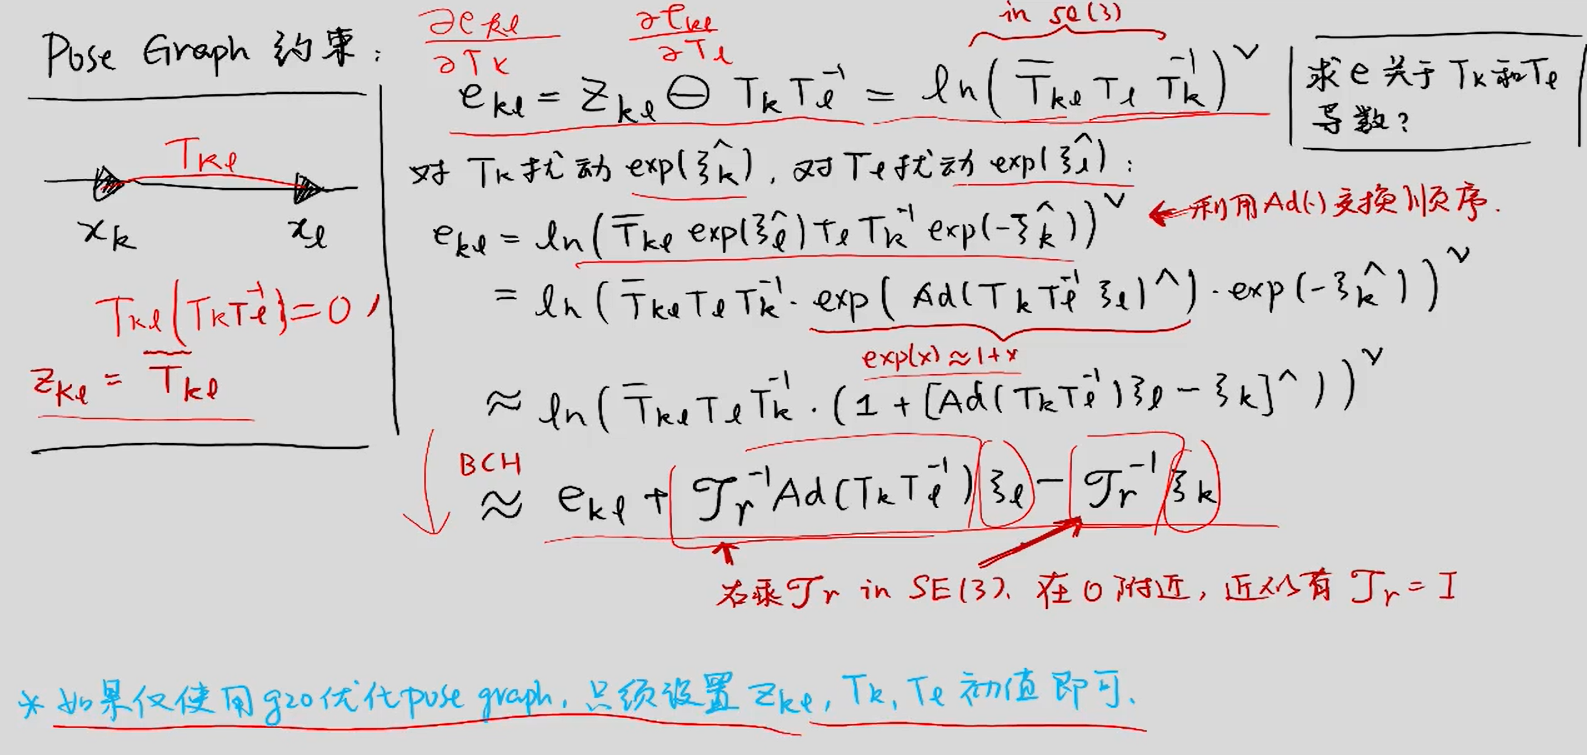 Pose Graph 约束:
∂e_kl/∂T_k ∂e_kl/∂T_l in se(3)
e_kl = z_kl ⊖ T_k T_l^{-1} = ln( T̄_kl T_l T_k^{-1} )^∨
求 e 关于 T_k 和 T_l
导数?
T_kl
x_k x_l
对 T_k 扰动 exp(ξ_k^), 对 T_l 扰动 exp(ξ_l^):
e_kl = ln( T̄_kl exp(ξ_l^) T_l T_k^{-1} exp(-ξ_k^) )^∨ ← 利用Ad(·)交换顺序.
= ln( T̄_kl T_l T_k^{-1} · exp( Ad(T_k T_l^{-1} ξ_l)^ ) · exp(-ξ_k^) )^∨
T_kl(T_k T_l^{-1})=0,
z_kl = T̄_kl
exp(x)≈1+x
≈ ln( T̄_kl T_l T_k^{-1} · (1 + [Ad(T_k T_l^{-1})ξ_l - ξ_k]^ ) )^∨
BCH
≈ e_kl + 𝒥_r^{-1} Ad(T_k T_l^{-1}) ξ_l - 𝒥_r^{-1} ξ_k
右乘 𝒥_r in SE(3). 在 0 附近, 近似有 𝒥_r = I
* 如果仅使用g2o优化pose graph, 只须设置 z_kl, T_k, T_l 初值即可.